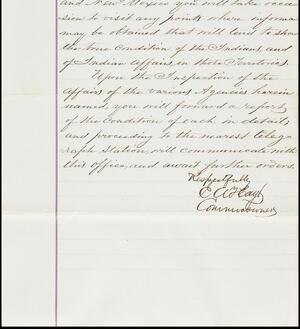 and New Mexico you will take occa-
sion to visit any points where informa
may be obtained that will tend to show
the true condition of the Indians and
of Indian Affairs, in those Territories.
Upon the Inspection of the
affairs of the various Agencies herein
named, you will forward a report
of the condition of each in details
and proceeding to the nearest teleg-
raph station, will communicate with
this office, and await further orders.
Respectfully
E A Hayt
Commissioner